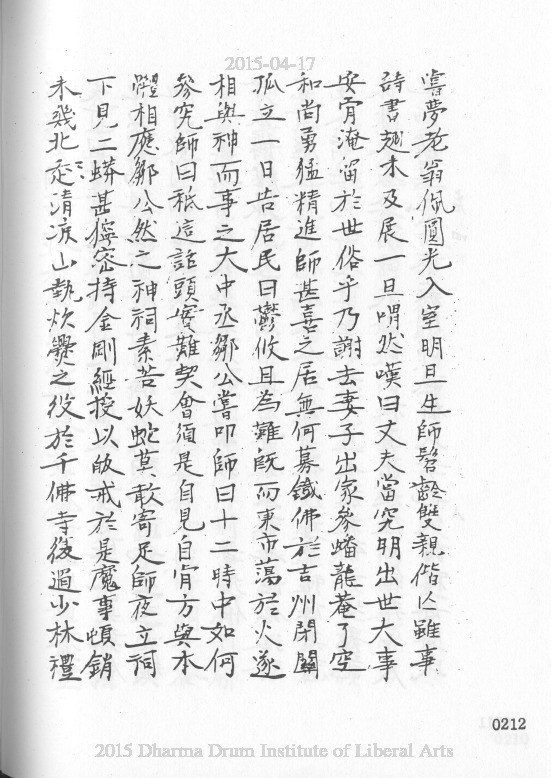 2015-04-17
嘗夢老翁佩圓光入室明旦生師髫齡雙親偕亾雖事
詩書趐未及展一旦喟然嘆曰丈夫當究明出世大事
安肎淹留於世俗乎乃謝去妻子出家參蟠龍菴了空
和尚勇猛精進師甚喜之居無何募鐵佛於吉州閉關
孤立一日告居民曰鬱攸且為難旣而東市蕩於火遂
相與神而事之大中丞鄒公嘗叩師曰十二時中如何
參究師曰秪這話頭實難契會須是自見自肎方與本
體相應鄒公然之神祠素苦妖蛇莫敢寄足師夜立祠
下見二蟒甚獰密持金剛經授以皈戒於是魔事頓銷
未幾北走清涼山執炊爨之役於千佛寺後過少林禮
0212
2015 Dharma Drum Institute of Liberal Arts